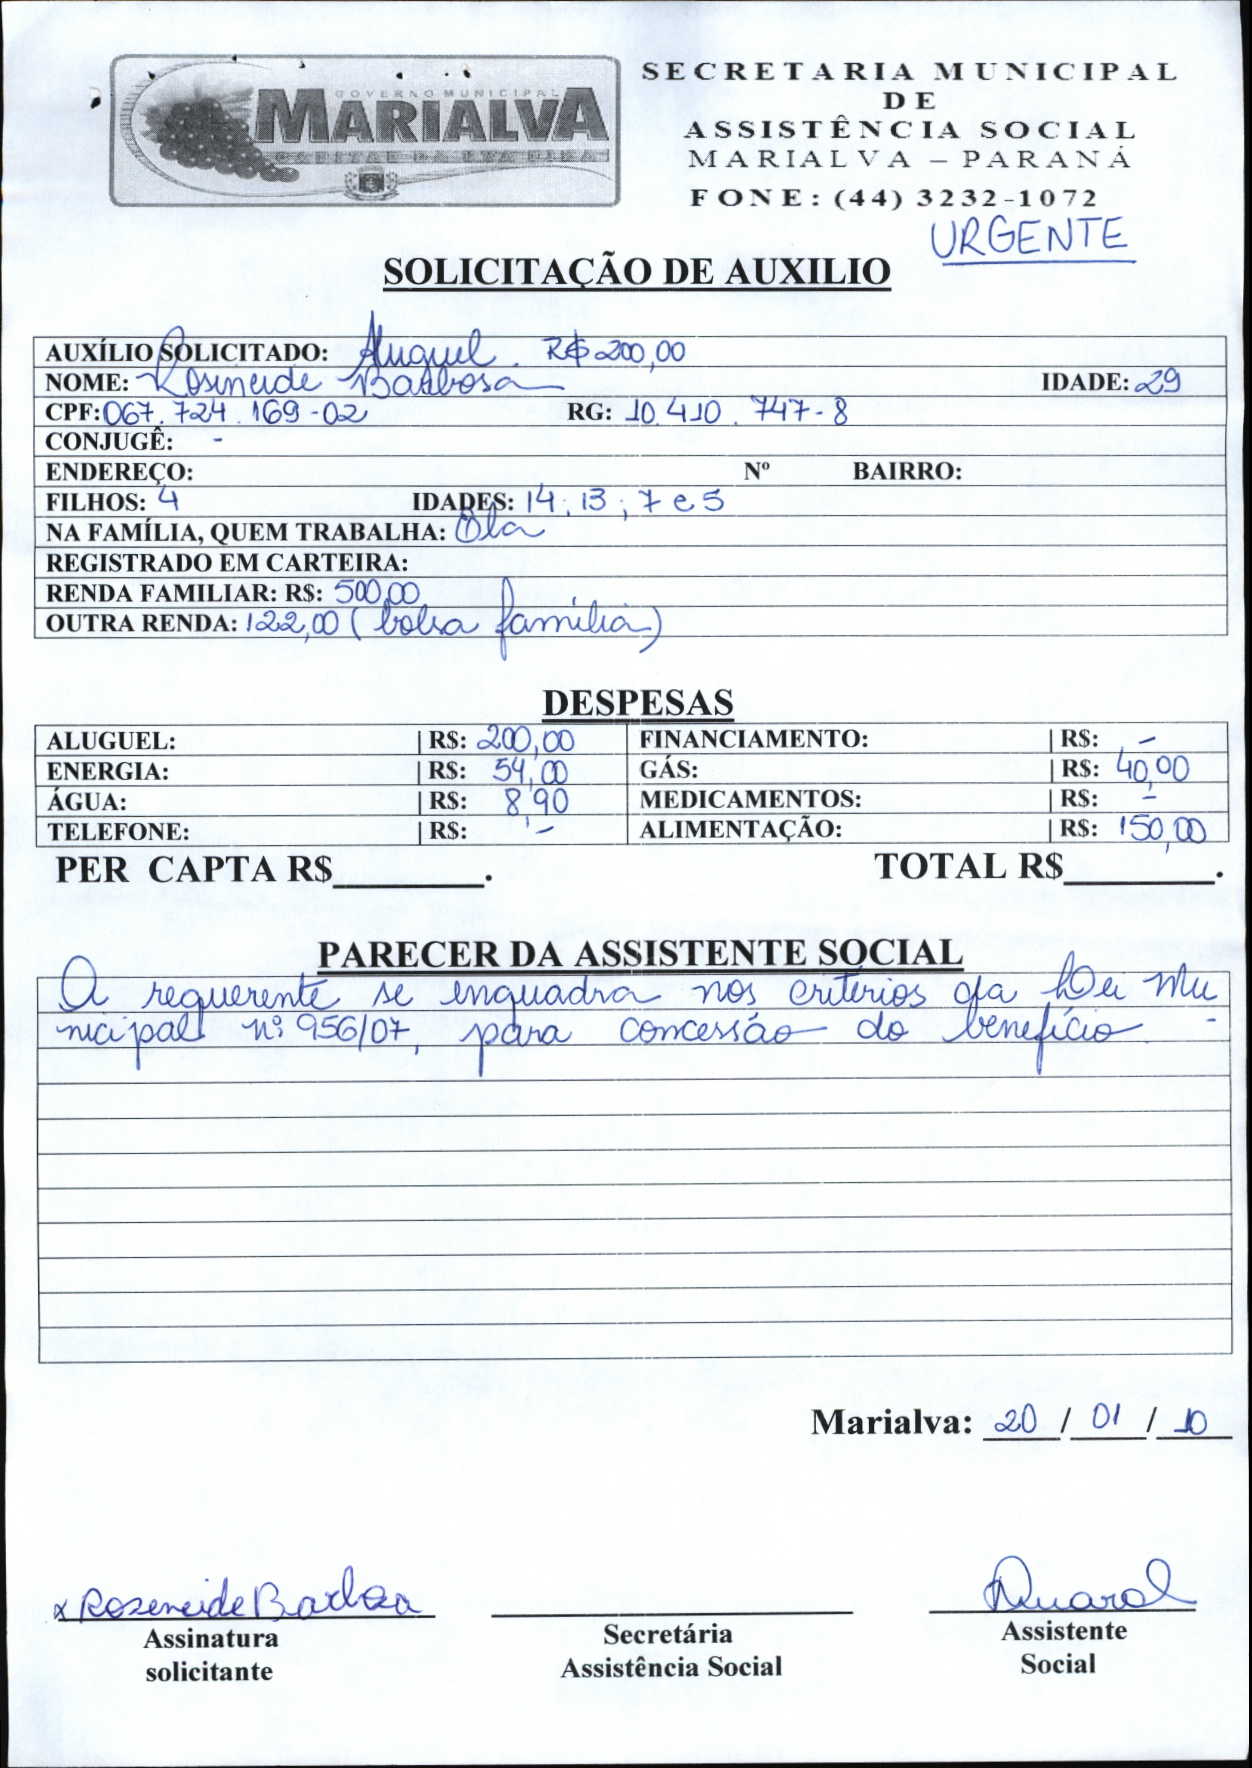 GOVERNO MUNICIPAL
MARIALVA
CAPITAL DA UVA FINA
SECRETARIA MUNICIPAL
DE
ASSISTÊNCIA SOCIAL
MARIALVA – PARANÁ
FONE: (44) 3232-1072
URGENTE
SOLICITAÇÃO DE AUXILIO
AUXÍLIO SOLICITADO: Aluguel. R$ 200,00
NOME: Rosineide Barbosa IDADE: 29
CPF: 067.724.169-02 RG: 10.410.747-8
CONJUGÊ: -
ENDEREÇO: Nº BAIRRO:
FILHOS: 4 IDADES: 14; 13; 7 e 5
NA FAMÍLIA, QUEM TRABALHA: Ela
REGISTRADO EM CARTEIRA:
RENDA FAMILIAR: R$: 500,00
OUTRA RENDA: 122,00 (bolsa família)
DESPESAS
ALUGUEL: | R$: 200,00 FINANCIAMENTO: | R$: -
ENERGIA: | R$: 54,00 GÁS: | R$: 40,00
ÁGUA: | R$: 8,90 MEDICAMENTOS: | R$: -
TELEFONE: | R$: - ALIMENTAÇÃO: | R$: 150,00
PER CAPTA R$________. TOTAL R$________.
PARECER DA ASSISTENTE SOCIAL
A requerente se enquadra nos critérios da Lei Mu
nicipal nº 956/07, para concessão do benefício -
Marialva: 20 / 01 / 10
x Roseneide Barbosa
Assinatura Secretária Assistente
solicitante Assistência Social Social